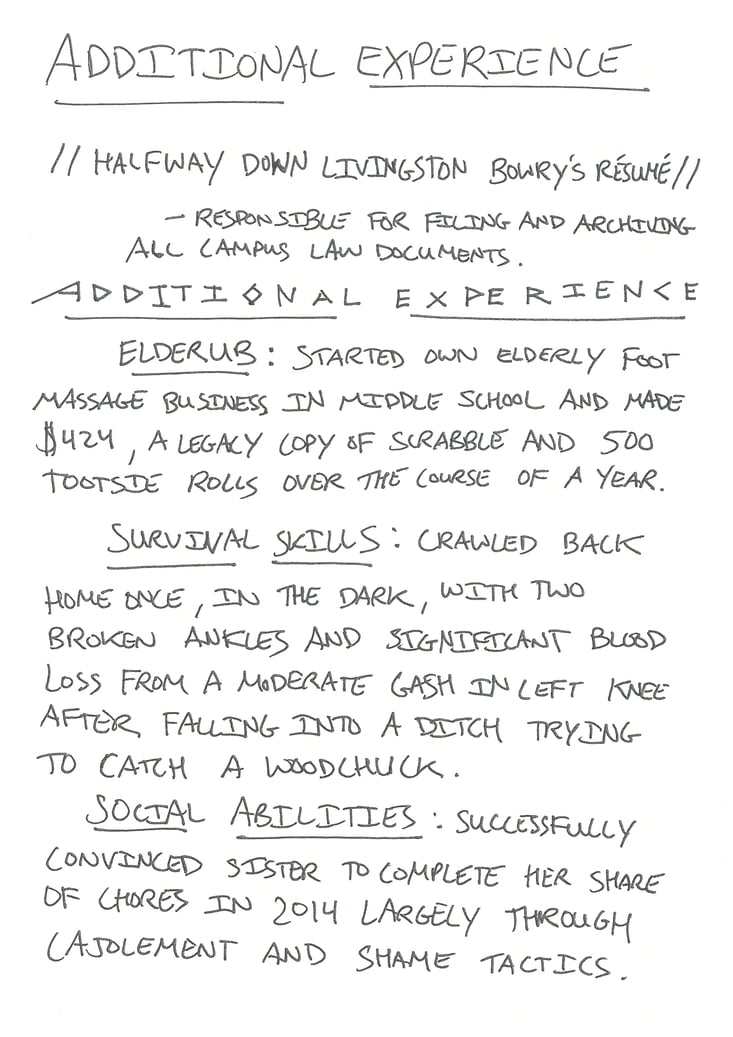 ADDITIONAL EXPERIENCE
// HALFWAY DOWN LIVINGSTON BOWRY'S RÉSUMÉ //
- RESPONSIBLE FOR FILING AND ARCHIVING
ALL CAMPUS LAW DOCUMENTS.
ADDITIONAL EXPERIENCE
ELDERUB: STARTED OWN ELDERLY FOOT
MASSAGE BUSINESS IN MIDDLE SCHOOL AND MADE
$424, A LEGACY COPY OF SCRABBLE AND 500
TOOTSIE ROLLS OVER THE COURSE OF A YEAR.
SURVIVAL SKILLS: CRAWLED BACK
HOME ONCE, IN THE DARK, WITH TWO
BROKEN ANKLES AND SIGNIFICANT BLOOD
LOSS FROM A MODERATE GASH IN LEFT KNEE
AFTER FALLING INTO A DITCH TRYING
TO CATCH A WOODCHUCK.
SOCIAL ABILITIES: SUCCESSFULLY
CONVINCED SISTER TO COMPLETE HER SHARE
OF CHORES IN 2014 LARGELY THROUGH
CAJOLEMENT AND SHAME TACTICS.